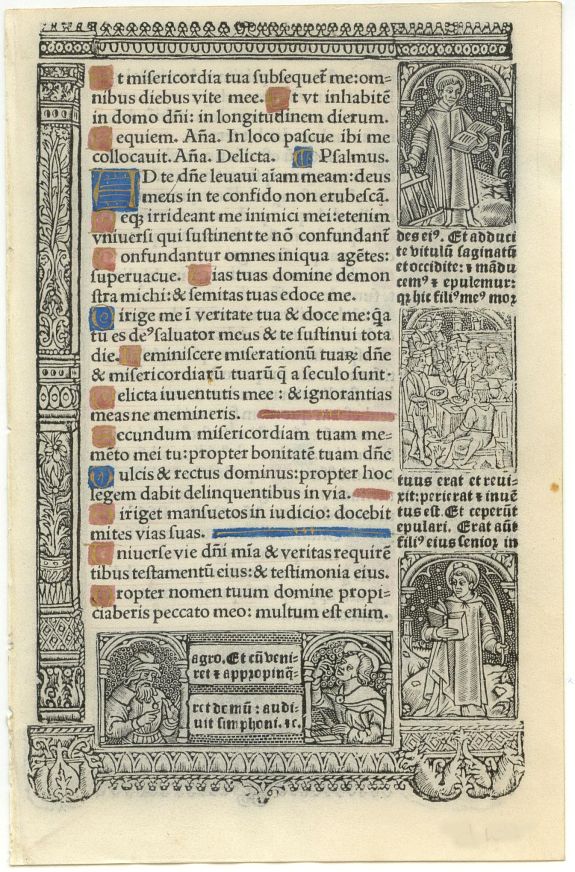 Et misericordia tua subsequet̃ me: om-
nibus diebus vite mee. Et vt inhabitē
in domo dñi: in longitudinem dierum.
Requiem. Aña. In loco pascue ibi me
collocauit. Aña. Delicta. Psalmus.
AD te dñe leuaui aīam meam: deus
meus in te confido non erubescā.
Neqꝫ irrideant me inimici mei: etenim
vniuersi qui sustinent te nō confundant̃
Confundantur omnes iniqua agētes:
superuacue. Uias tuas domine demon
stra michi: & semitas tuas edoce me.
Dirige me ī veritate tua & doce me: q̄a
tu es deꝰ saluator meus & te sustinui tota
die. Reminiscere miserationū tuaꝝ dñe
& misericordiarū tuarū q̄ a seculo sunt.
Delicta iuuentutis mee: & ignorantias
meas ne memineris.
Secundum misericordiam tuam me-
mēto mei tu: propter bonitatē tuam dñe
Dulcis & rectus dominus: propter hoc
legem dabit delinquentibus in via.
Diriget mansuetos in iudicio: docebit
mites vias suas.
Uniuerse vie dñi mīa & veritas requirē
tibus testamentū eius: & testimonia eius.
Propter nomen tuum domine propi-
ciaberis peccato meo: multum est enim.
des eiꝰ. Et adduci
te vitulū saginatū
et occidite: ⁊ mādu
cemꝰ ⁊ epulemur:
qꝛ hic filiꝰ meꝰ moꝛ
tuus erat et reui-
xit: perierat ⁊ inuē
tus est. Et ceperūt
epulari. Erat aūt
filiꝰ eius senioꝛ in
agro. Et cū veni-
ret ⁊ appropinq̄-
ret domū: audi-
uit simphoni. ⁊c.